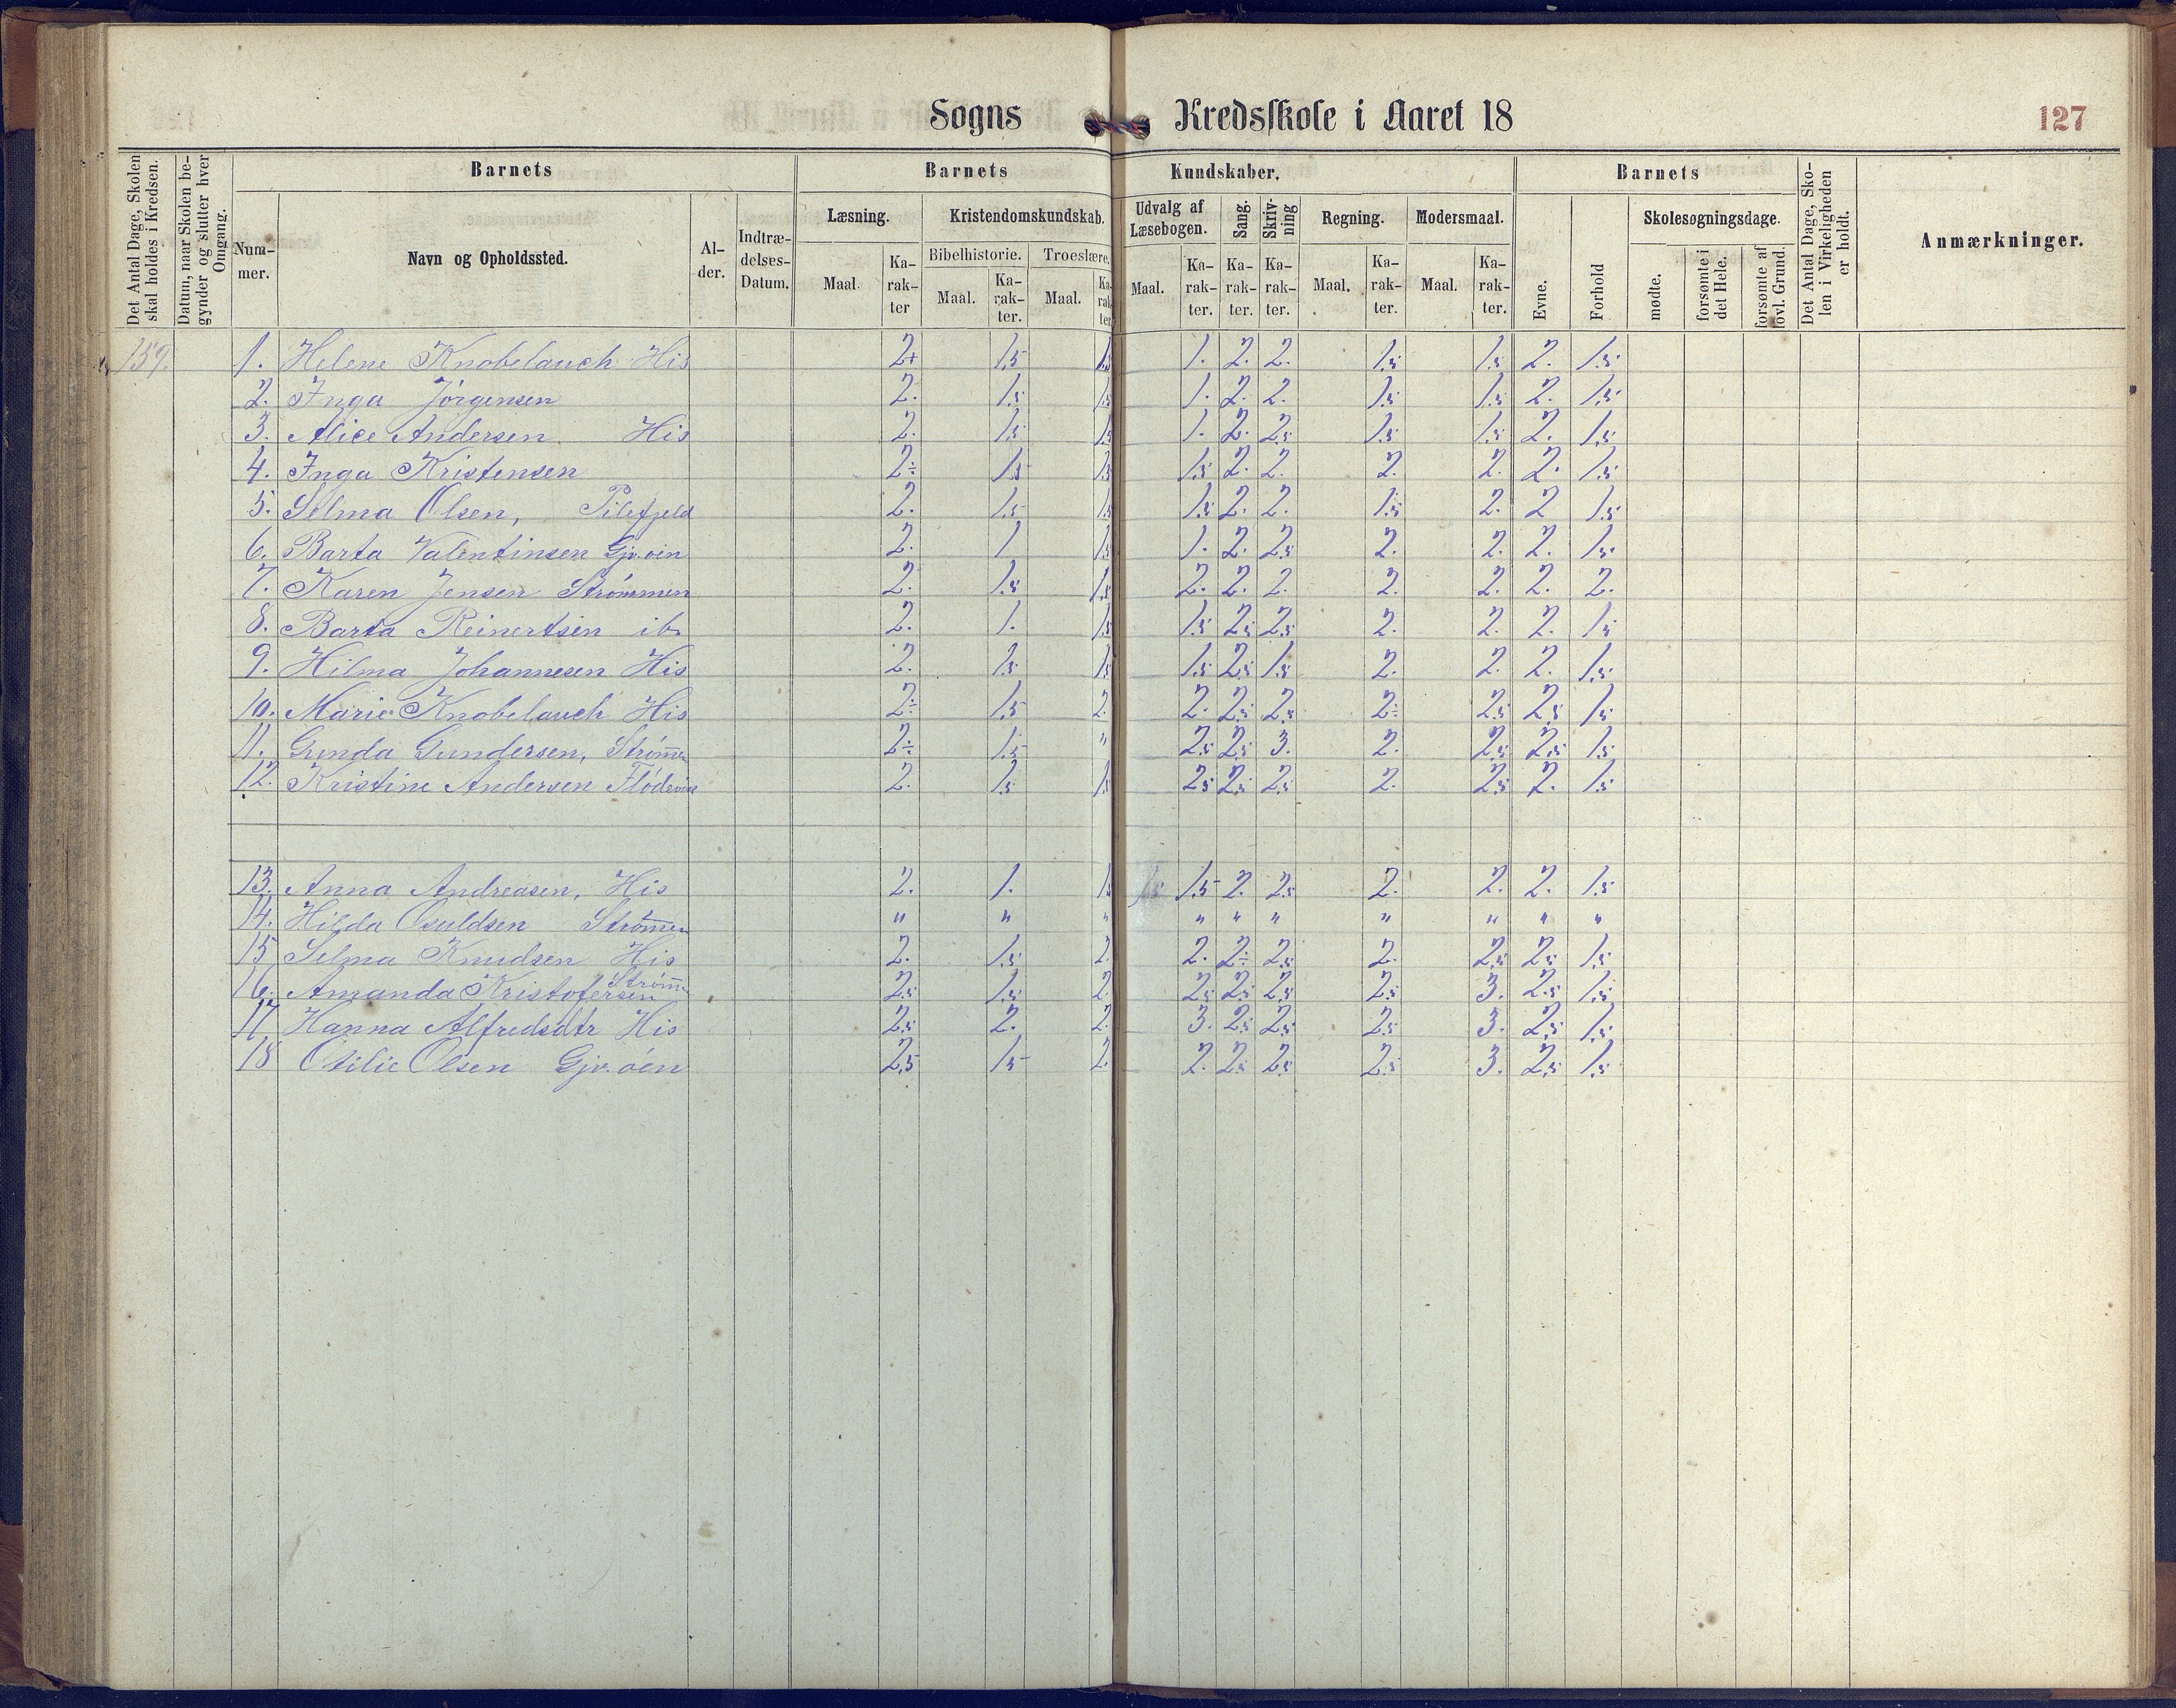 Sogns Kredsskole i Aaret 18 127
Det Antal Dage, Skolen skal holdes i Kredsen.
Datum, naar Skolen begynder og slutter hver Omgang.
Barnets
Nummer.
Navn og Opholdssted.
Alder.
Indtrædelses-Datum.
Barnets Kundskaber.
Læsning.
Maal. Karakter
Kristendomskundskab.
Bibelhistorie. Troeslære.
Maal. Karakter. Maal. Karakter
Udvalg af Læsebogen. Sang. Skrivning Regning. Modersmaal.
Maal. Karakter. Karakter. Karakter. Maal. Karakter. Maal. Karakter.
Barnets
Evne. Forhold
Skolesøgningsdage.
mødte. forsømte i det Hele. forsømte af lovl. Grund.
Det Antal Dage, Skolen i Virkeligheden er holdt.
Anmærkninger.
159. 1. Helene Knobelauch His 2+ 1.5 1.5 1. 2. 2. 1.5 1.5 2. 1.5
2. Inga Jörgensen 2. 1.5 1.5 1. 2. 2. 1.5 1.5 2. 1.5
3. Alice Andersen His 2. 1.5 1.5 1. 2. 2.5 1.5 1.5 2. 1.5
4. Inga Kristensen 2÷ 1.5 1.5 1.5 2. 2. 2. 2. 2. 1.5
5. Selma Olsen, Pilefjeld 2. 1.5 1.5 1.5 2. 2. 1.5 2. 2 1.5
6. Barta Valentinsen Gjv.öin 2. 1 1.5 1. 2. 2.5 2. 2. 2. 1.5
7. Karen Jensen Strömmen 2. 1.5 1.5 2. 2. 2. 2. 2. 2. 2.
8. Barta Reinertsen ib. 2. 1. 1.5 1.5 2.5 2.5 2. 2. 2. 1.5
9. Hilma Johannesen His 2. 1.5 1.5 1.5 2.5 1.5 2. 2. 2. 1.5
10. Marie Knobelauch His 2÷ 1.5 2. 2. 2.5 2.5 2÷ 2.5 2.5 1.5
11. Gunda Gundersen, Strömn 2÷ 1.5 " 2.5 2.5 3. 2. 2.5 2.5 1.5
12. Kristine Andersen 2. 1.5 1.5 2.5 2.5 2.5 2. 2.5 2. 1.5
13. Anna Andreasen, His 2. 1. 1.5 1.5 1.5 2. 2.5 2. 2. 2. 1.5
14. Hilda Osuldsen Strömen " " " " " " " " " "
15 Selma Knudsen His 2. 1.5 2. 2. 2÷ 2.5 2. 2.5 2.5 1.5
16. Amanda Kristofersen Strömn 2.5 1.5 2. 2.5 2.5 2.5 2.5 3. 2.5 1.5
17 Hanna Alfredsdtr His 2.5 2. 2. 3. 2.5 2.5 2.5 3. 2.5 1.5
18 Otilie Olsen Gjv.öen 2.5 1.5 2. 2. 2.5 2.5 2.5 3. 2.5 1.5